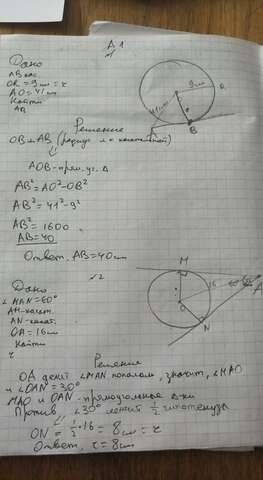 Дано
АВ кас.
OR = 9 см = r
АО = 41 см
Найти
АВ
9 см
R
41 см
A
B
Решение
OB ⊥ AB (радиус ⊥ к касательной)
⇓
АОВ - прям. уг. Δ
AB² = AO² - OB²
AB² = 41² - 9²
AB² = 1600
AB = 40
Ответ. AB = 40 см
№2
Дано
∠MAN = 60°
AM - касат.
AN - касат.
OA = 16 см
Найти
r
M
16
A
O
N
Решение
OA делит ∠MAN пополам, значит, ∠MAO
и ∠OAN = 30°
MAO и OAN - прямоугольные Δ-ки
Против ∠30° лежит ½ гипотенузы
⇓
ON = ½ · 16 = 8 см = r
Ответ. r = 8 см